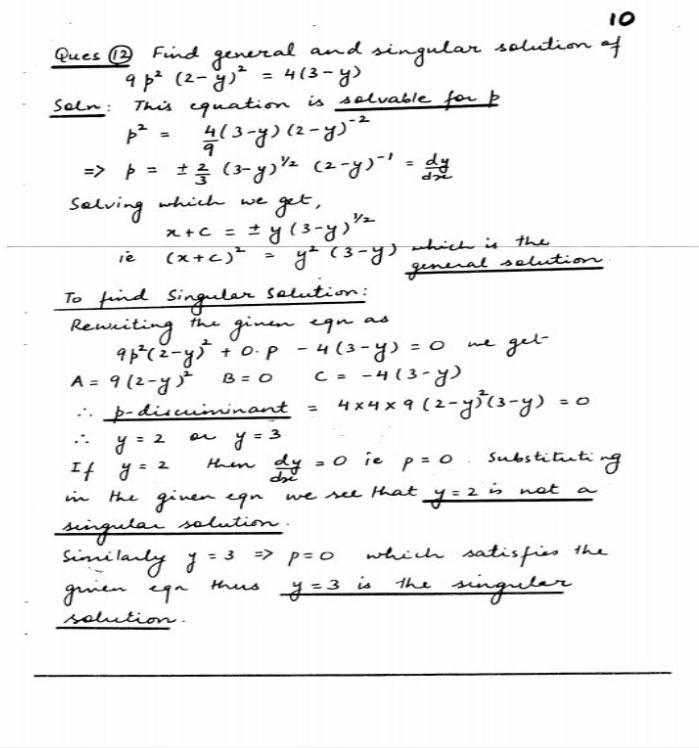 10
Ques (12) Find general and singular solution of
9 p² (2-y)² = 4(3-y)
Soln: This equation is solvable for p
p² = 4/9 (3-y) (2-y)⁻²
=> p = ± 2/3 (3-y)^1/2 (2-y)⁻¹ = dy/dx
Solving which we get,
x+c = ± y (3-y)^1/2
ie (x+c)² = y² (3-y) which is the general solution
To find Singular Solution:
Rewriting the given eqn as
9p²(2-y)² + 0.p - 4(3-y) = 0 we get
A = 9(2-y)² B = 0 C = -4(3-y)
∴ p-discriminant = 4×4×9 (2-y)²(3-y) = 0
∴ y = 2 or y = 3
If y = 2 then dy/dx = 0 ie p = 0. Substituting
in the given eqn we see that y = 2 is not a
singular solution.
Similarly y = 3 => p = 0 which satisfies the
given eqn thus y = 3 is the singular
solution.